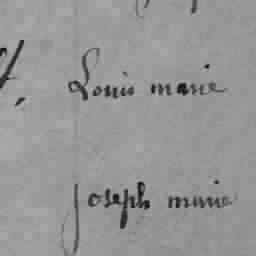 Louis marie
joseph marie